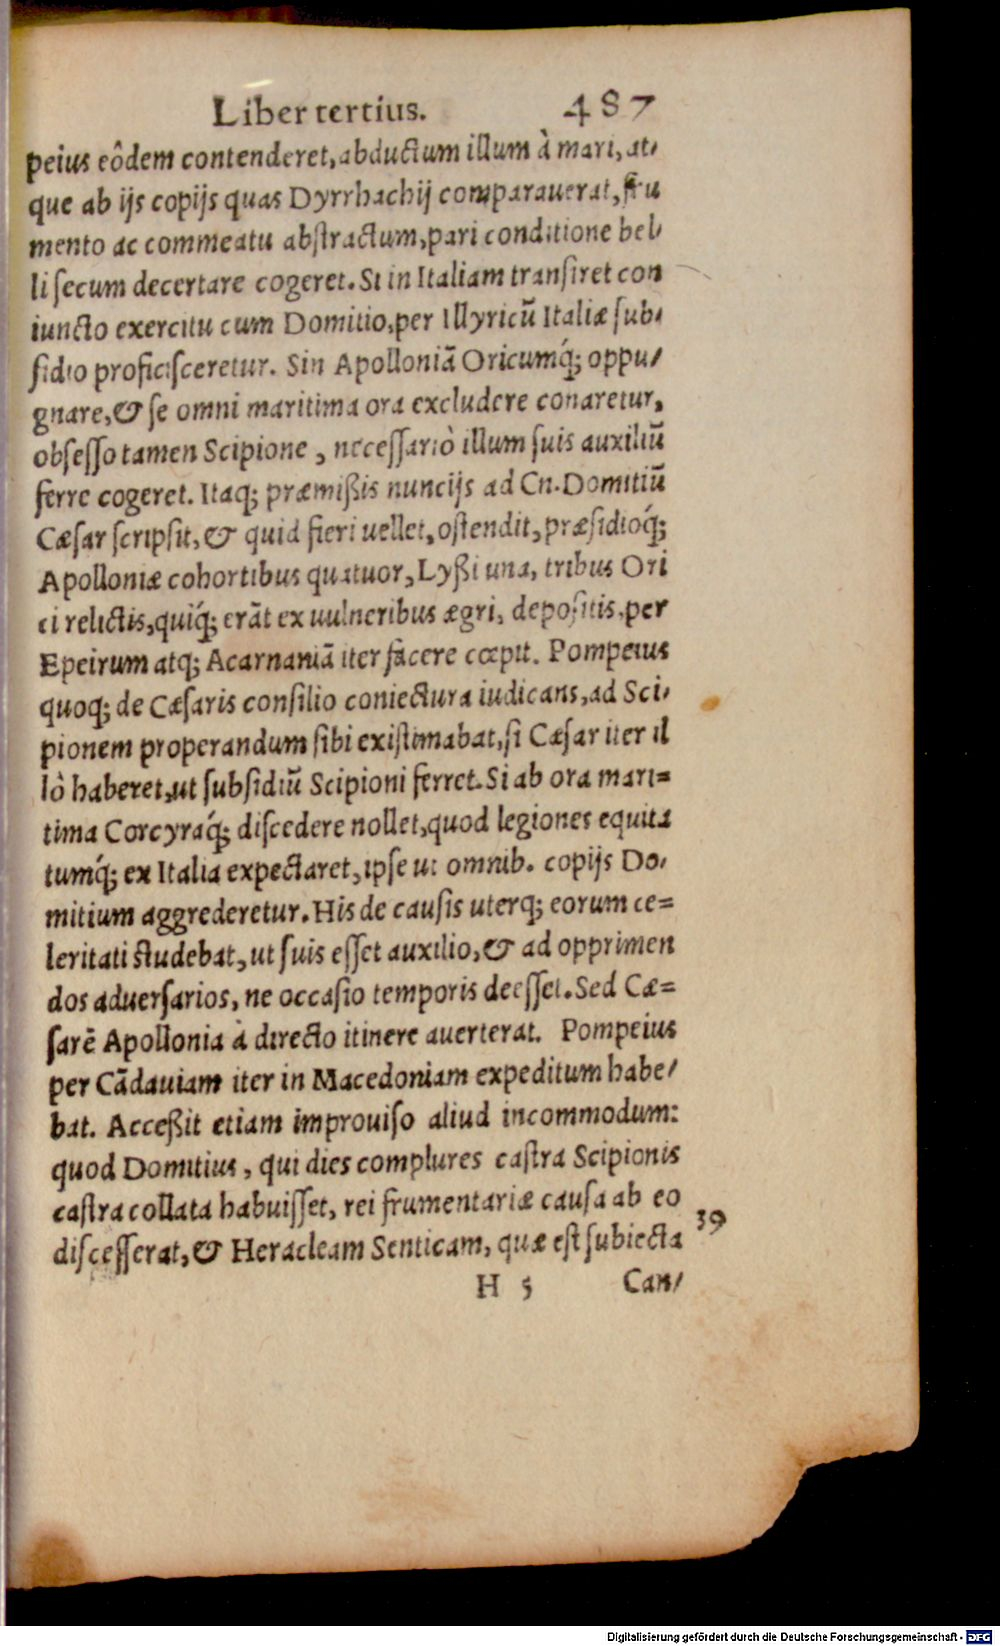 Liber tertius. 487
peius eôdem contenderet, abductum illum à mari, at/
que ab ijs copijs quas Dyrrhachij comparauerat, fru
mento ac commeatu abstractum, pari conditione bel/
li secum decertare cogeret. Si in Italiam transiret con
iuncto exercitu cum Domitio, per Illyricũ Italiæ sub/
sidio proficisceretur. Sin Apolloniã Oricumq́; oppu/
gnare, & se omni maritima ora excludere conaretur,
obsesso tamen Scipione, necessariò illum suis auxiliũ
ferre cogeret. Itaq; præmißis nuncijs ad Cn. Domitiũ
Cæsar scripsit, & quid fieri uellet, ostendit, præsidioq́;
Apolloniæ cohortibus quatuor, Lyßi una, tribus Ori
ci relictis, quiq́; erãt ex uulneribus ægri, depositis, per
Epeirum atq; Acarnaniã iter facere cœpit. Pompeius
quoq; de Cæsaris consilio coniectura iudicans, ad Sci/
pionem properandum sibi existimabat, si Cæsar iter il
lò haberet, ut subsidiũ Scipioni ferret. Si ab ora mari=
tima Corcyraq́; discedere nollet, quod legiones equita
tumq́; ex Italia expectaret, ipse ut omnib. copijs Do/
mitium aggrederetur. His de causis uterq; eorum ce=
leritati studebat, ut suis esset auxilio, & ad opprimen
dos aduersarios, ne occasio temporis deesset. Sed Cæ=
sarẽ Apollonia à directo itinere auerterat. Pompeius
per Cãdauiam iter in Macedoniam expeditum habe/
bat. Acceßit etiam improuiso aliud incommodum:
quod Domitius, qui dies complures castra Scipionis
castra collata habuisset, rei frumentariæ causa ab eo
discesserat, & Heracleam Senticam, quæ est subiecta
39
H 5 Can/
Digitalisierung gefördert durch die Deutsche Forschungsgemeinschaft - DFG